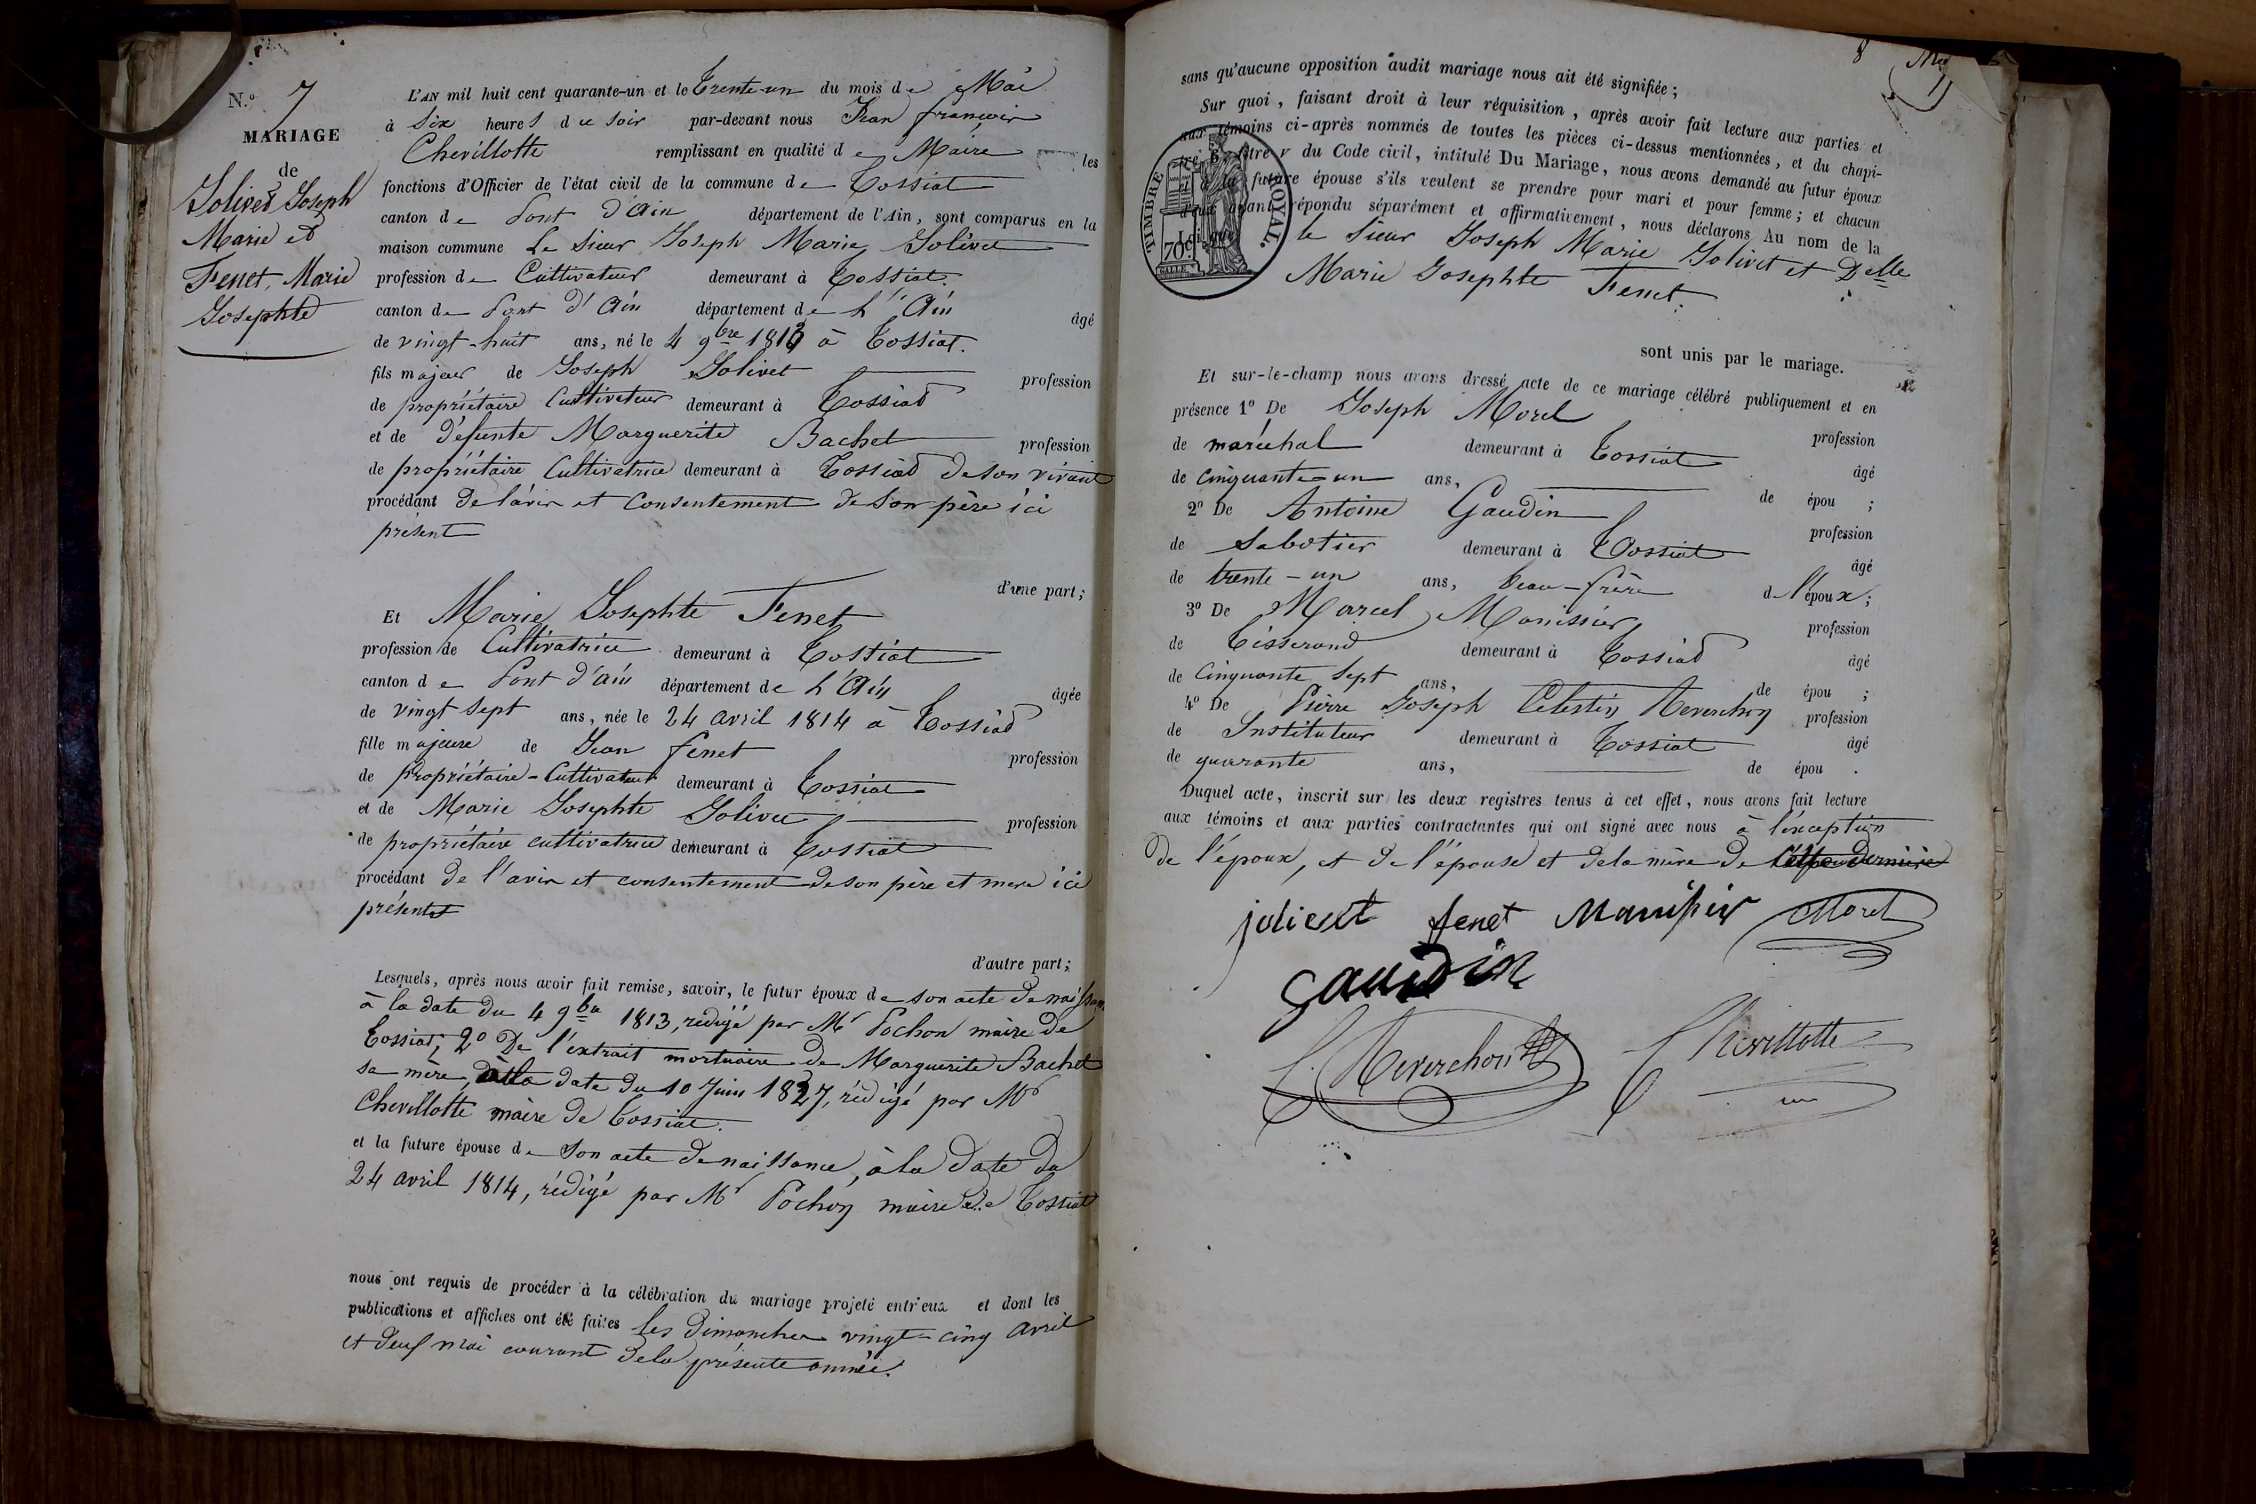 N.º 7
MARIAGE
de
Jolivet Joseph
Marie et
Fenet, Marie
Josephte
L'AN mil huit cent quarante-un et le trente-un du mois de Mai
à six heures du soir par-devant nous Jean françois
Chevillotte remplissant en qualité de Maire les
fonctions d'Officier de l'état civil de la commune de Tossiat
canton de Pont d'Ain département de l'Ain, sont comparus en la
maison commune Le Sieur Joseph Marie Jolivet
profession de Cultivateur demeurant à Tossiat.
canton de Pont d'Ain département de L'Ain âgé
de vingt-huit ans, né le 4 9bre 1813 à Tossiat.
fils majeur de Joseph Jolivet profession
de propriétaire Cultivateur demeurant à Tossiat
et de défunte Marguerite Bachet profession
de propriétaire Cultivatrice demeurant à Tossiat de son vivant
procédant de l'avis et consentement de son père ici
présent
d'une part;
Et Marie Josephte Fenet
profession de Cultivatrice demeurant à Tossiat
canton de Pont d'Ain département de L'Ain âgée
de vingt sept ans, née le 24 avril 1814 à Tossiat
fille majeure de Jean fenet profession
de propriétaire-Cultivateur demeurant à Tossiat
et de Marie Josephte Jolivet profession
de propriétaire cultivatrice demeurant à Tossiat
procédant de l'avis et consentement de son père et mere ici
présents
d'autre part;
Lesquels, après nous avoir fait remise, savoir, le futur époux de son acte de naissance
à la date du 4 9bre 1813, rédigé par Mr Pochon maire de
Tossiat; 2º De l'extrait mortuaire de Marguerite Bachet
sa mère, à la date du 10 Juin 1827, rédigé par Mr
Chevillotte maire de Tossiat.
et la future épouse de son acte de naissance, à la date du
24 avril 1814, rédigé par Mr Pochon maire de Tossiat
nous ont requis de procéder à la célébration du mariage projeté entr'eux et dont les
publications et affiches ont été faites les dimanches vingt-cinq avril
et deux mai courant de la présente année.
8
sans qu'aucune opposition audit mariage nous ait été signifiée;
Sur quoi, faisant droit à leur réquisition, après avoir fait lecture aux parties et
aux témoins ci-après nommés de toutes les pièces ci-dessus mentionnées, et du chapi-
tre 6 titre V du Code civil, intitulé Du Mariage, nous avons demandé au futur époux
et à la future épouse s'ils veulent se prendre pour mari et pour femme; et chacun
d'eux ayant répondu séparément et affirmativement, nous déclarons Au nom de la
Loi que le Sieur Joseph Marie Jolivet et Delle
Marie Josephte Fenet.
TIMBRE ROYAL.
70c.
sont unis par le mariage.
Et sur-le-champ nous avons dressé acte de ce mariage célébré publiquement et en
présence 1º De Joseph Morel profession
de maréchal demeurant à Tossiat âgé
de cinquante-un ans, de épou ;
2º De Antoine Gaudin profession
de Sabotier demeurant à Tossiat âgé
de trente-un ans, beau-frère de l'époux;
3º De Marcel Manissier profession
de Tisserand demeurant à Tossiat âgé
de cinquante sept ans, de épou ;
4º De Pierre Joseph Celestin Reverchon profession
de Instituteur demeurant à Tossiat âgé
de quarante ans, de épou .
Duquel acte, inscrit sur les deux registres tenus à cet effet, nous avons fait lecture
aux témoins et aux parties contractantes qui ont signé avec nous à l'exception
de l'époux, et de l'épouse et de la mère de dernière
jolivet fenet Manissier Morel
gaudin
Reverchon Chevillotte